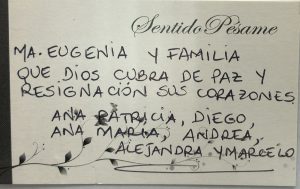 Sentido Pésame
MA. EUGENIA Y FAMILIA
QUE DIOS CUBRA DE PAZ Y
RESIGNACIÓN SUS CORAZONES
ANA PATRICIA, DIEGO,
ANA MARIA, ANDREA,
ALEJANDRA Y MARCELO